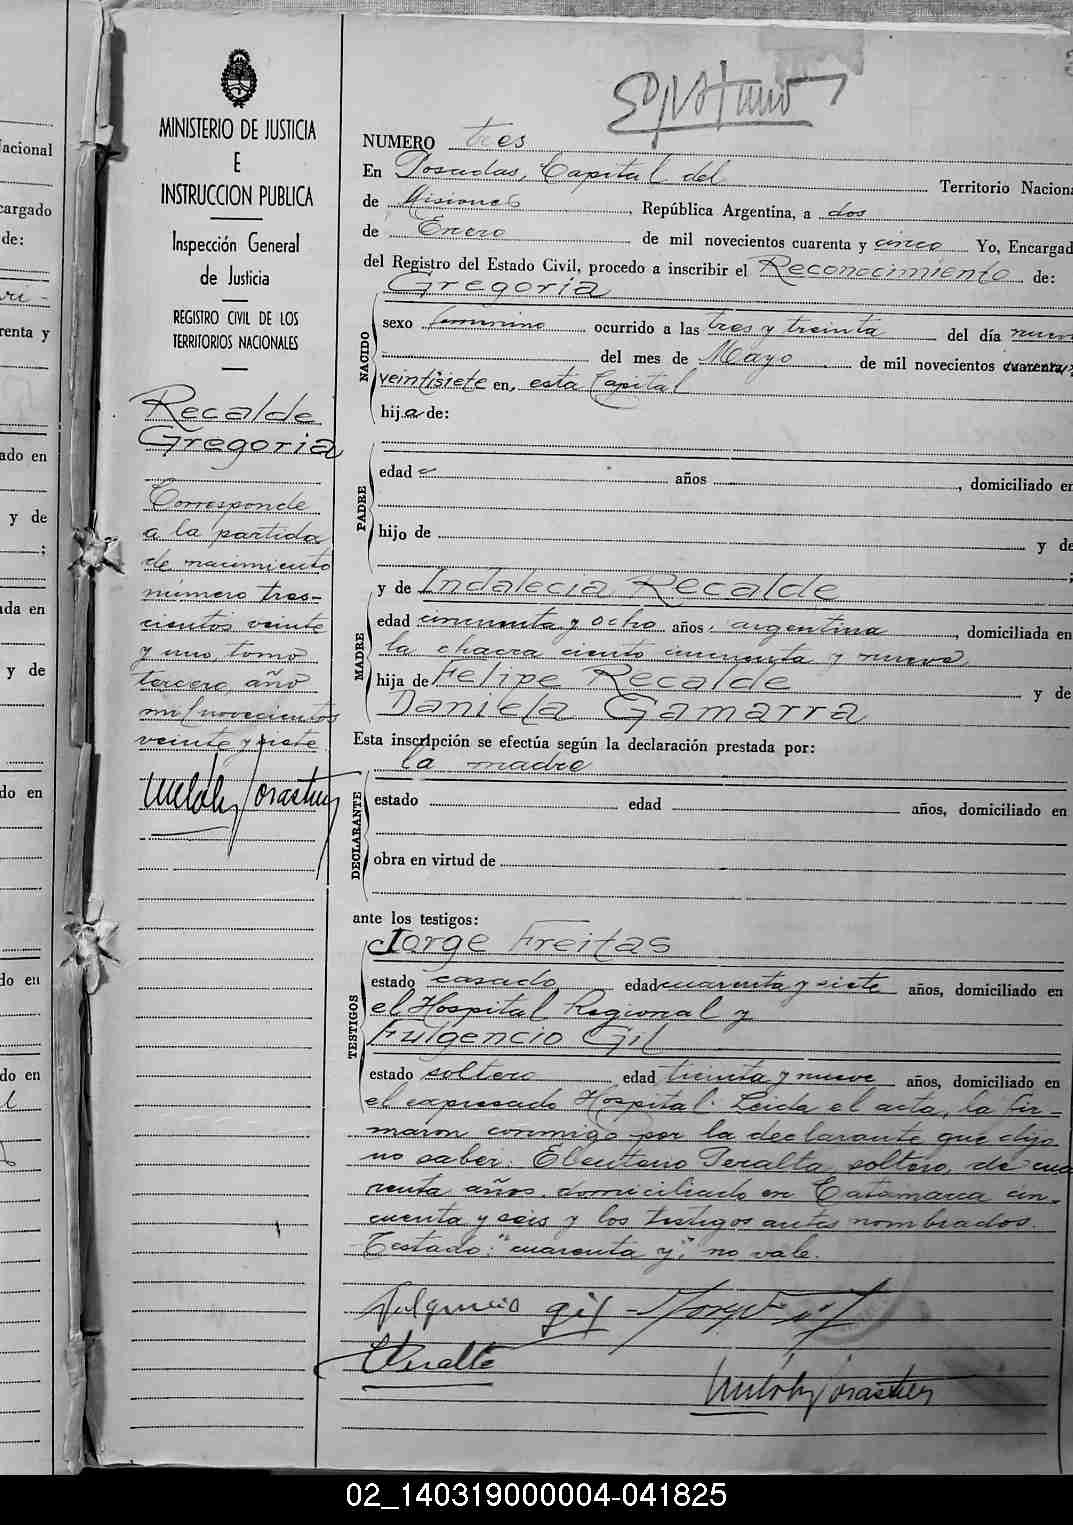 MINISTERIO DE JUSTICIA
E
INSTRUCCION PUBLICA
Inspección General
de Justicia
REGISTRO CIVIL DE LOS
TERRITORIOS NACIONALES
Recalde
Gregoria
Corresponde
a la partida
de nacimiento
número tres-
cientos veinte
y uno, tomo
tercero, año
mil novecientos
veinte y siete
NUMERO tres
En Posadas, Capital del Territorio Naciona
de Misiones, República Argentina, a dos
de Enero de mil novecientos cuarenta y cinco Yo, Encargad
del Registro del Estado Civil, procedo a inscribir el Reconocimiento de:
Gregoria
NACIDO
sexo femenino ocurrido a las tres y treinta del día
del mes de Mayo de mil novecientos cuarenta y
veintisiete en, esta Capital
hija de:
PADRE
edad años, domiciliado en
hijo de y de
;
MADRE
y de Indalecia Recalde
edad cincuenta y ocho años, argentina, domiciliada en
la chacra ciento cincuenta y nueve
hija de Felipe Recalde y de
Daniela Gamarra
Esta inscripción se efectúa según la declaración prestada por:
la madre
DECLARANTE
estado edad años, domiciliado en
obra en virtud de
ante los testigos:
TESTIGOS
Jorge Freitas
estado casado edad cuarenta y siete años, domiciliado en
el Hospital Regional y
Fulgencio Gil
estado soltero edad treinta y nueve años, domiciliado en
el expresado Hospital. Leida el acta, la fir-
maron conmigo por la declarante que dijo
no saber: Eleuterio Peralta, soltero, de cua
renta años, domiciliado en Catamarca cin-
cuenta y seis y los testigos antes nombrados.
Testado: "cuarenta y", no vale.
Fulgencio Gil
EPeralta
nacional
cargado
de:
renta y
ado en
y de
;
ada en
y de
do en
do en
do en
02_140319000004-041825